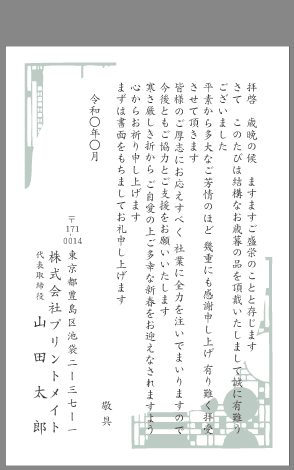 拝啓　歳晩の候　ますますご盛栄のことと存じます
さて　このたびは結構なお歳暮の品を頂戴いたしまして誠に有難う
ございました
平素から多大なご芳情のほど　幾重にも感謝申し上げ　有り難く拝受
させて頂きます
皆様のご厚志にお応えすべく　社業に全力を注いでまいりますので
今後ともご協力とご支援をお願いいたします
寒さ厳しき折から　ご自愛の上ご多幸な新春をお迎えなされますよう
心からお祈り申し上げます
まずは書面をもちましてお礼申し上げます
敬具
令和〇年〇月
〒171
0014
東京都豊島区池袋二ー三七ー一
株式会社プリントメイト
代表取締役　山田太郎